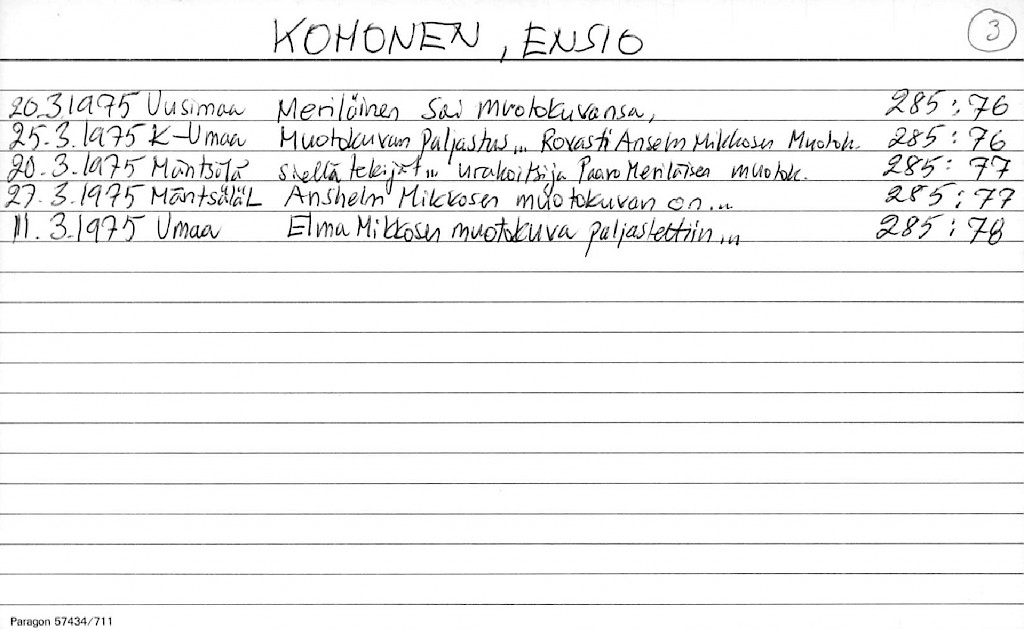 KOHONEN, ENSIO 3
20.3.1975 Uusimaa Meriläinen sai muotokuvansa, 285:76
25.3.1975 K-Umaa Muotokuvan paljastus... Rovasti Anselm Mikkosen Muotok. 285:76
20.3.1975 Mäntsälä siellä tekijät... urakoitsija Paavo Meriläisen muotok. 285:77
27.3.1975 MäntsäläL Anshelm Mikkosen muotokuvan on... 285:77
11.3.1975 Umaa Elma Mikkosen muotokuva paljastettiin... 285:78
Paragon 57434/711